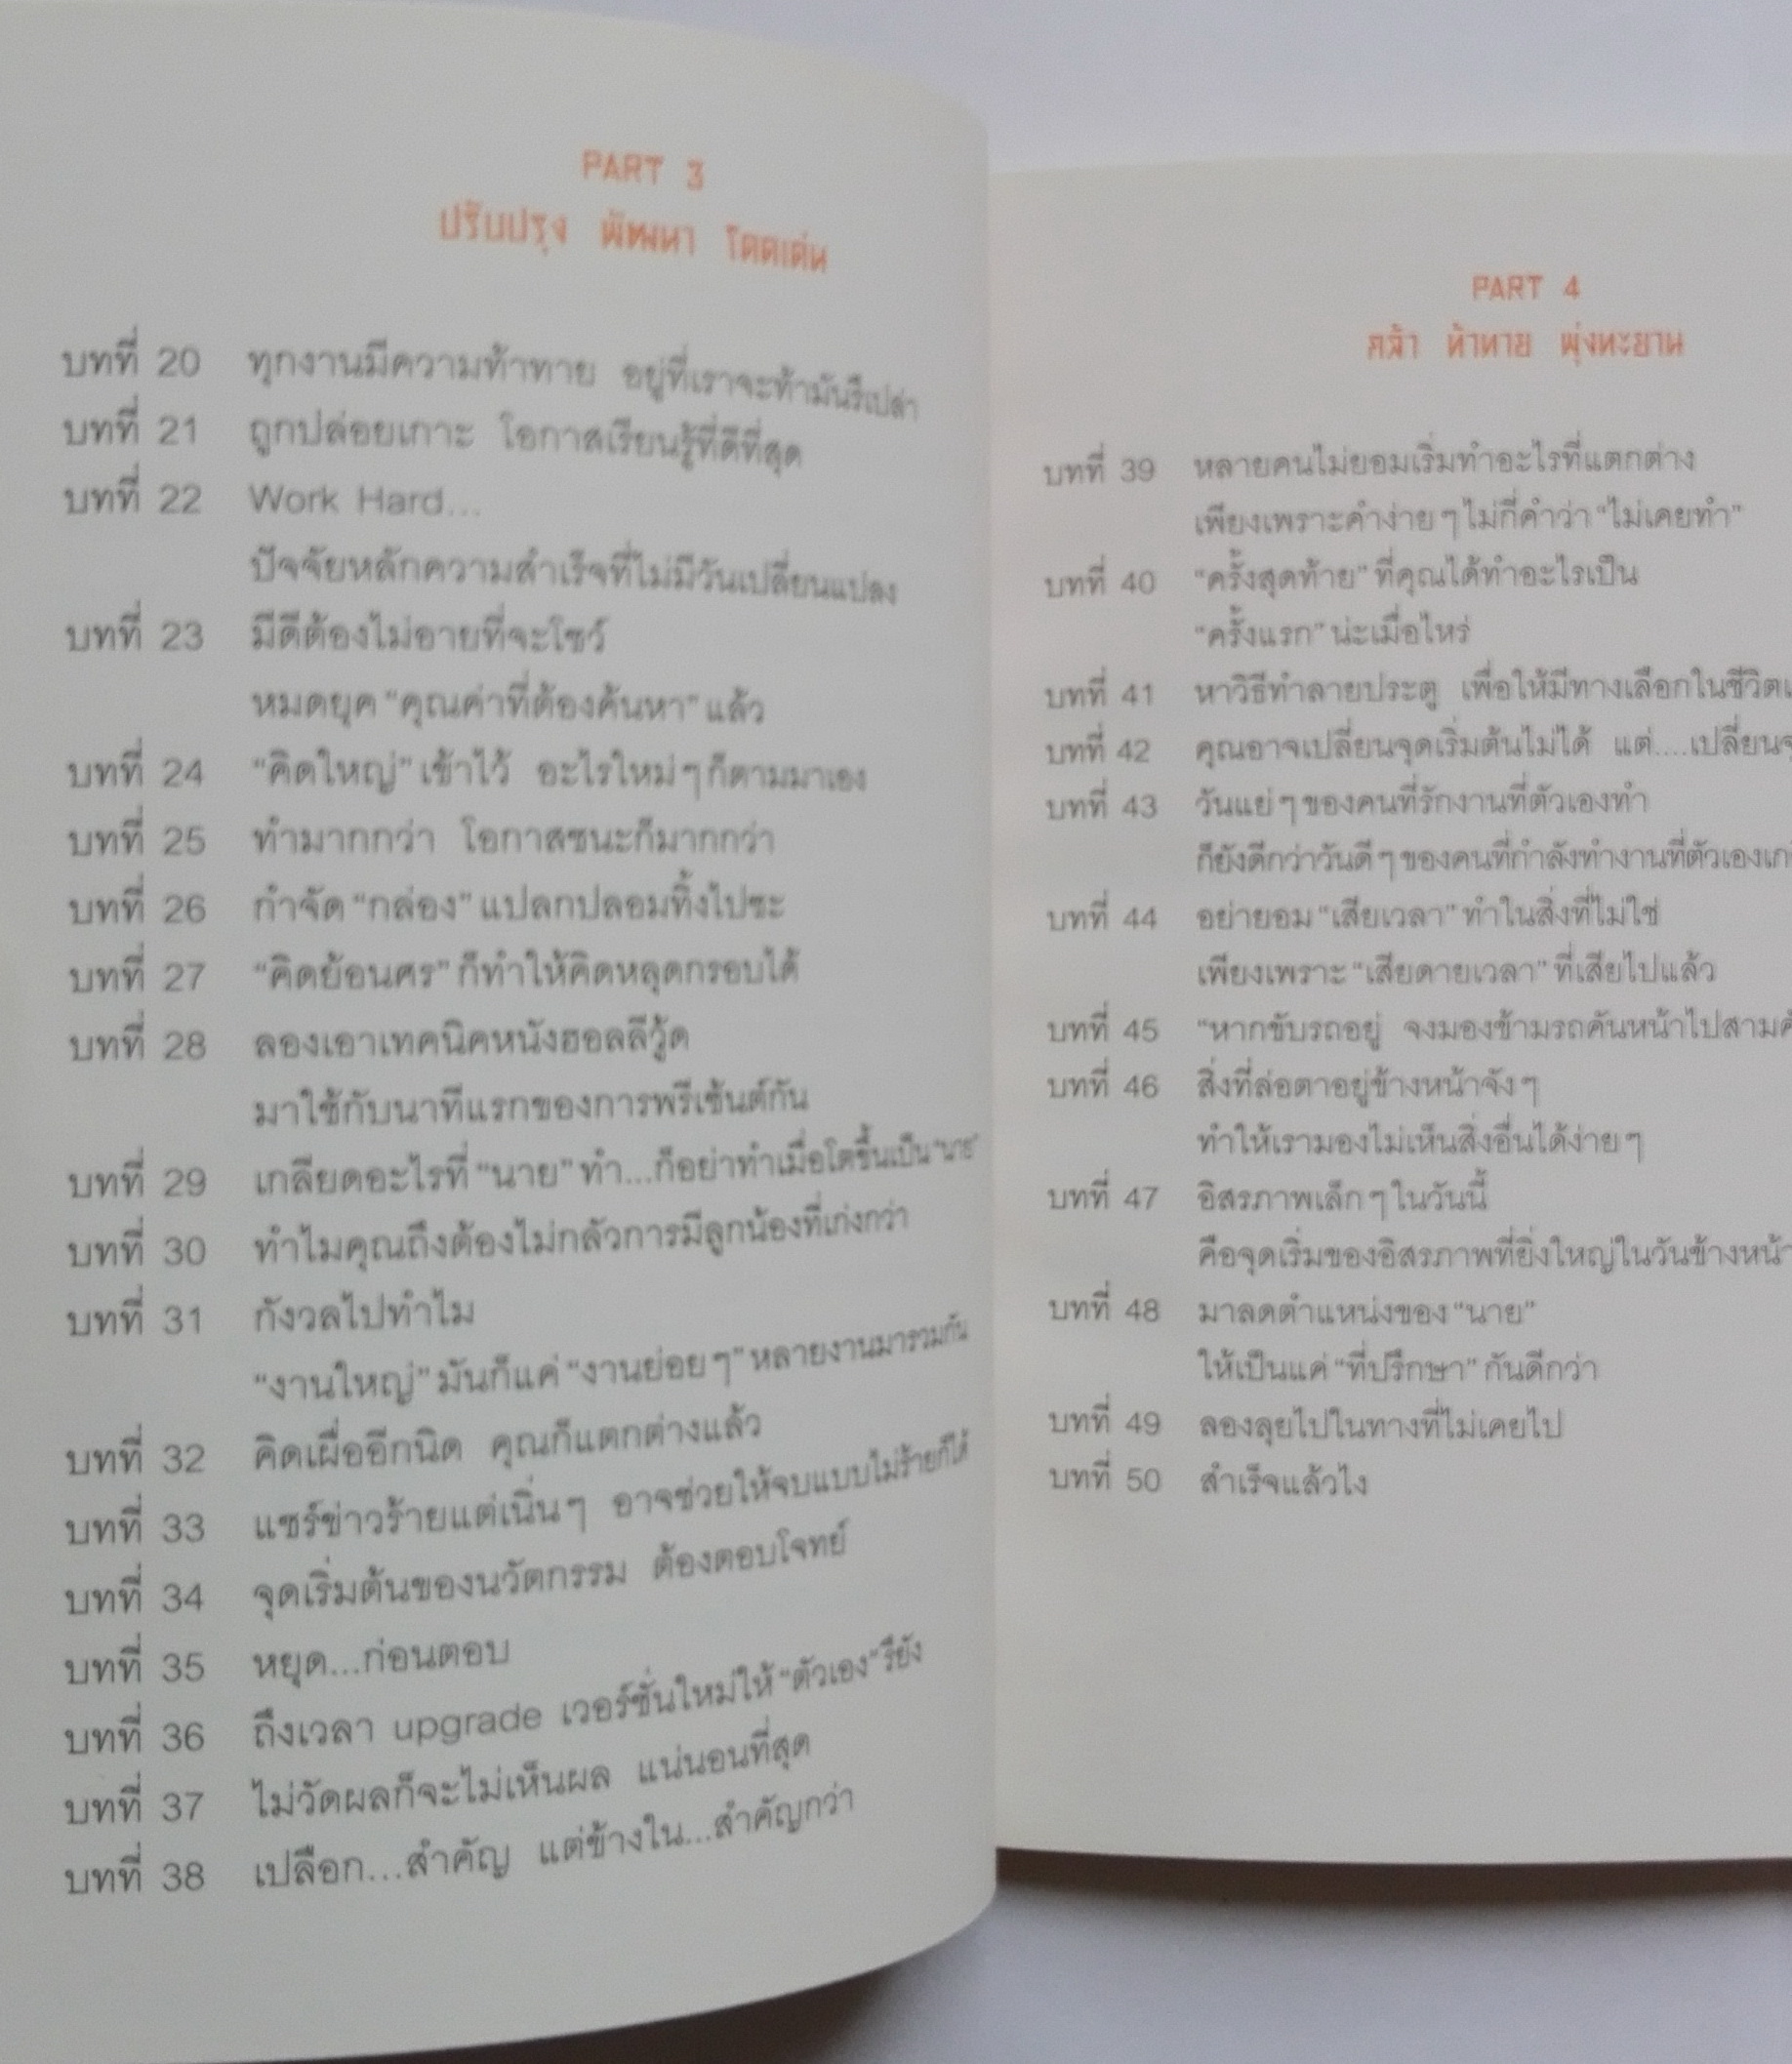 PART 3
ปรับปรุง พัฒนา โดดเด่น
บทที่ 20 ทุกงานมีความท้าทาย อยู่ที่เราจะท้ามันรึเปล่า
บทที่ 21 ถูกปล่อยเกาะ โอกาสเรียนรู้ที่ดีที่สุด
บทที่ 22 Work Hard...
ปัจจัยหลักความสำเร็จที่ไม่มีวันเปลี่ยนแปลง
บทที่ 23 มีดีต้องไม่อายที่จะโชว์
หมดยุค “คุณค่าที่ต้องค้นหา” แล้ว
บทที่ 24 “คิดใหญ่” เข้าไว้ อะไรใหม่ๆ ก็ตามมาเอง
บทที่ 25 ทำมากกว่า โอกาสชนะก็มากกว่า
บทที่ 26 กำจัด “กล่อง” แปลกปลอมทิ้งไปซะ
บทที่ 27 “คิดย้อนศร” ก็ทำให้คิดหลุดกรอบได้
บทที่ 28 ลองเอาเทคนิคหนังฮอลลีวู้ด
มาใช้กับนาทีแรกของการพรีเซ้นต์กัน
บทที่ 29 เกลียดอะไรที่ “นาย” ทำ...ก็อย่าทำเมื่อโตขึ้นเป็น “นาย”
บทที่ 30 ทำไมคุณถึงต้องไม่กลัวการมีลูกน้องที่เก่งกว่า
บทที่ 31 กังวลไปทำไม
“งานใหญ่” มันก็แค่ “งานย่อยๆ” หลายงานมารวมกัน
บทที่ 32 คิดเผื่ออีกนิด คุณก็แตกต่างแล้ว
บทที่ 33 แชร์ข่าวร้ายแต่เนิ่นๆ อาจช่วยให้จบแบบไม่ร้ายก็ได้
บทที่ 34 จุดเริ่มต้นของนวัตกรรม ต้องตอบโจทย์
บทที่ 35 หยุด...ก่อนตอบ
บทที่ 36 ถึงเวลา upgrade เวอร์ชั่นใหม่ให้ “ตัวเอง” รึยัง
บทที่ 37 ไม่วัดผลก็จะไม่เห็นผล แน่นอนที่สุด
บทที่ 38 เปลือก...สำคัญ แต่ข้างใน...สำคัญกว่า
PART 4
กล้า ท้าทาย พุ่งทะยาน
บทที่ 39 หลายคนไม่ยอมเริ่มทำอะไรที่แตกต่าง
เพียงเพราะคำง่ายๆ ไม่กี่คำว่า “ไม่เคยทำ”
บทที่ 40 “ครั้งสุดท้าย” ที่คุณได้ทำอะไรเป็น
“ครั้งแรก” น่ะเมื่อไหร่
บทที่ 41 หาวิธีทำลายประตู เพื่อให้มีทางเลือกในชีวิต
บทที่ 42 คุณอาจเปลี่ยนจุดเริ่มต้นไม่ได้ แต่....เปลี่ยน
บทที่ 43 วันแย่ๆ ของคนที่รักงานที่ตัวเองทำ
ก็ยังดีกว่าวันดีๆ ของคนที่กำลังทำงานที่ตัวเอง
บทที่ 44 อย่ายอม “เสียเวลา” ทำในสิ่งที่ไม่ใช่
เพียงเพราะ “เสียดายเวลา” ที่เสียไปแล้ว
บทที่ 45 “หากขับรถอยู่ จงมองข้ามรถคันหน้าไปสาม
บทที่ 46 สิ่งที่ล่อตาอยู่ข้างหน้าจังๆ
ทำให้เรามองไม่เห็นสิ่งอื่นได้ง่ายๆ
บทที่ 47 อิสรภาพเล็กๆ ในวันนี้
คือจุดเริ่มของอิสรภาพที่ยิ่งใหญ่ในวันข้างหน้า
บทที่ 48 มาลดตำแหน่งของ “นาย”
ให้เป็นแค่ “ที่ปรึกษา” กันดีกว่า
บทที่ 49 ลองลุยไปในทางที่ไม่เคยไป
บทที่ 50 สำเร็จแล้วไง